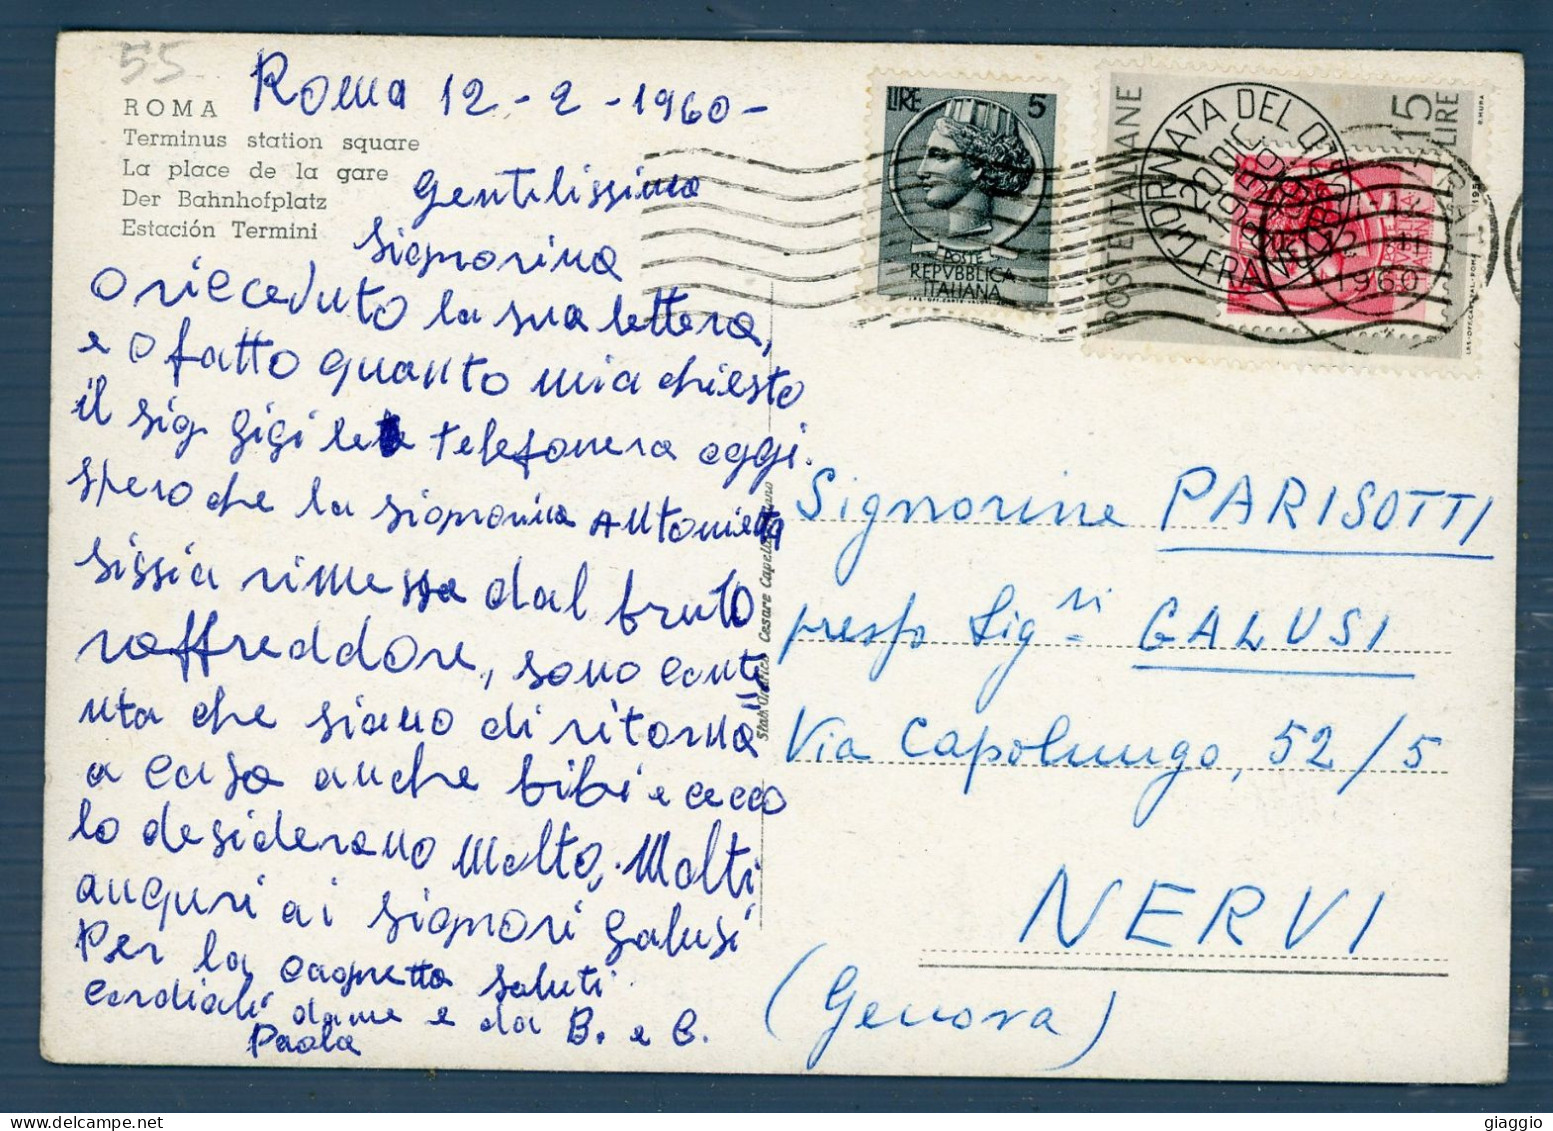 55
ROMA
Terminus station square
La place de la gare
Der Bahnhofplatz
Estación Termini
Roma 12-2-1960-
gentilissima
signorina
o rieceduto la sua lettera,
e o fatto quanto mia chiesto
il sig gigi le telefonera oggi.
spero che la signorina Antonietta
sissia rimessa dal bruto
raffreddore, sono conte
nta che siano di ritorna
a casa anche bibi e cecco
lo desiderano molto. Molti
auguri ai signori galusi
Per la cagnetta saluti
cordiali dame e da B. e C.
Paola
Stab. Grafico Cesare Capello
LIRE 5
POSTE
REPVBBLICA
ITALIANA
POSTE ITALIANE
15
LIRE
R. MURA
GIORNATA DEL
20 DIC.
1959
FRANCOBOLLO
1960
Signorine PARISOTTI
presso Sig.ri GALUSI
Via Capolungo, 52/5
NERVI
(Genova)
giaggio